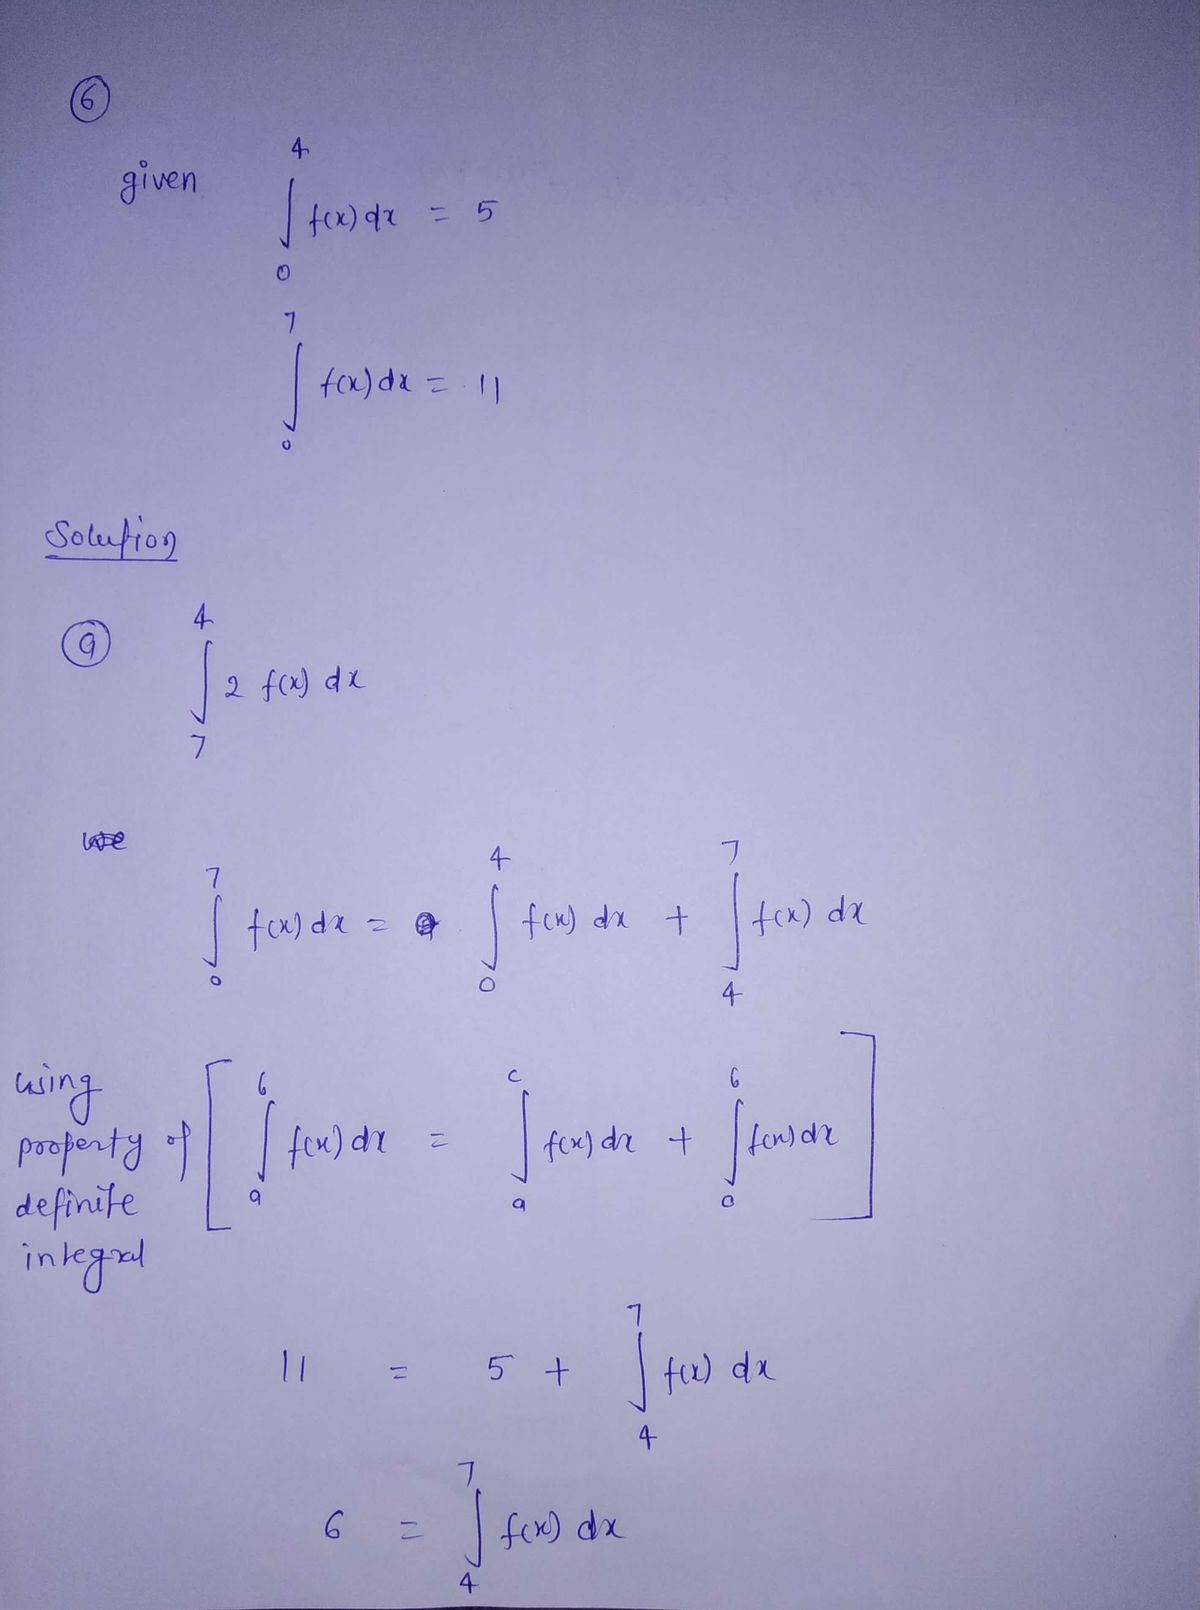 ⑥
given ∫₀⁴ f(x) dx = 5
∫₀⁷ f(x) dx = 11
Solution
ⓐ ∫₇⁴ 2 f(x) dx
∫₀⁷ f(x) dx = ∫₀⁴ f(x) dx + ∫₄⁷ f(x) dx
using property of definite integral [ ∫ₐ⁶ f(x) dx = ∫ₐᶜ f(x) dx + ∫₀⁶ f(x) dx ]
11 = 5 + ∫₄⁷ f(x) dx
6 = ∫₄⁷ f(x) dx